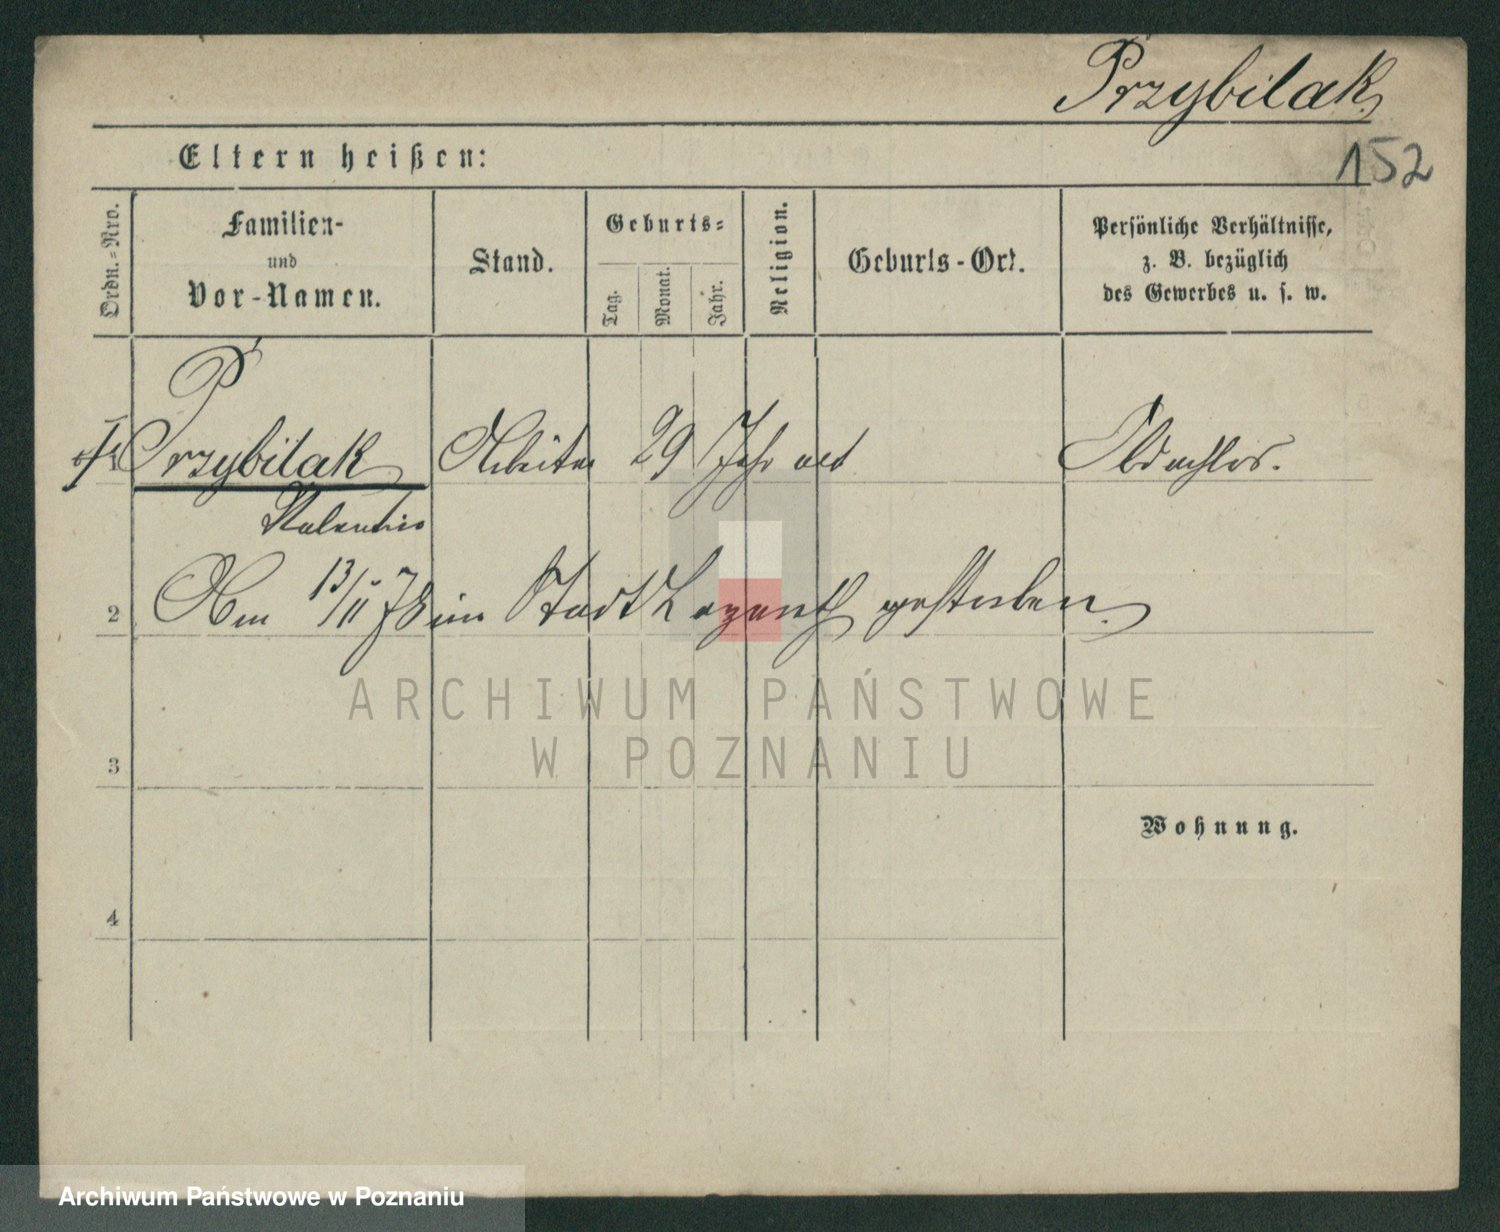 Przybilak
152
Eltern heißen:
Ordn.-Nro.
Familien-
und
Vor-Namen.
Stand.
Geburts-
Tag.
Monat.
Jahr.
Religion.
Geburts-Ort.
Persönliche Verhältnisse,
z. B. bezüglich
des Gewerbes u. s. w.
Przybilak Arbeiter 29 Jahr alt Obdachlos.
Valentin
2 Am 13/11 78 im Stadt Lazareth gestorben.
ARCHIWUM PAŃSTWOWE
W POZNANIU
3
Wohnung.
4
Archiwum Państwowe w Poznaniu